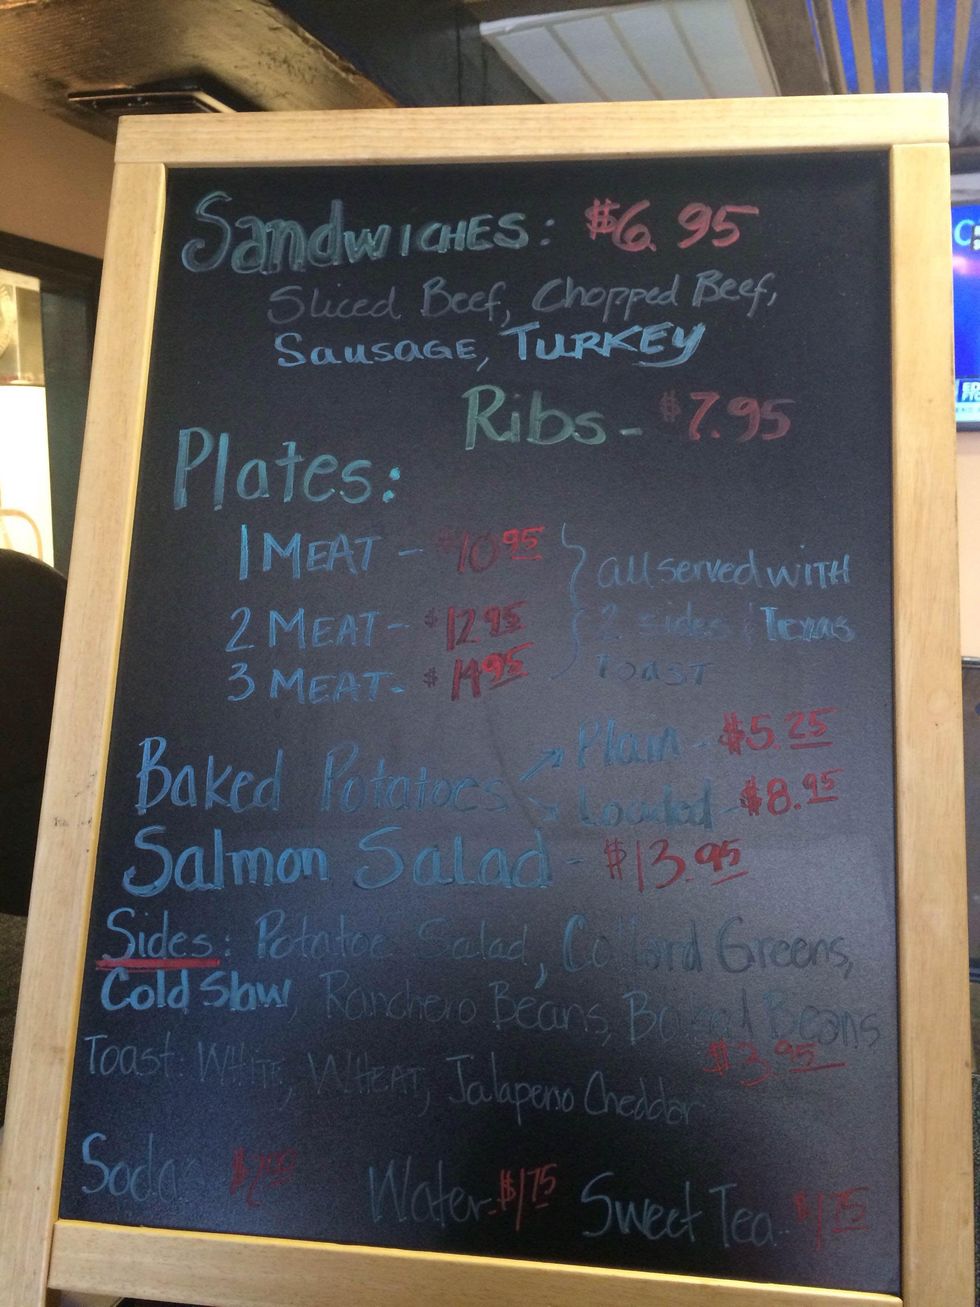 Sandwiches: $6.95
Sliced Beef, Chopped Beef,
Sausage, Turkey
Ribs - $7.95
Plates:
1 Meat - $10.95
all served with
2 Meat - $12.95
2 sides & Texas
3 Meat - $14.95
Toast
Baked Potatoes
Plain - $5.25
Loaded - $8.95
Salmon Salad - $13.95
Sides: Potatoe Salad, Collard Greens,
Cold Slaw, Ranchero Beans, Baked Beans
$3.95
Toast: Whit, Wheat, Jalapeno Cheddar
Soda $2.00 Water - $1.75 Sweet Tea - $1.75